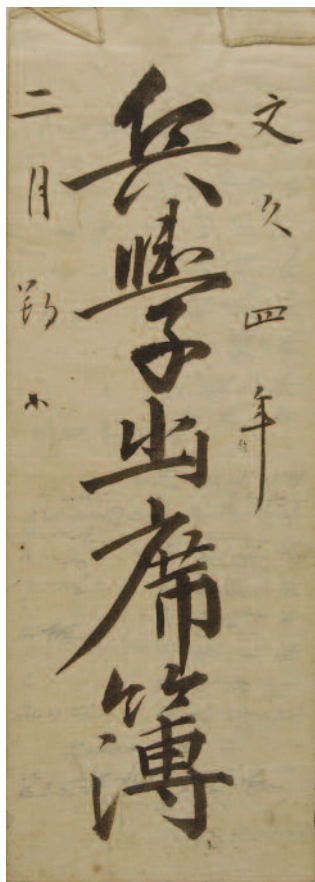 文久四年
兵學出席簿
二月朔